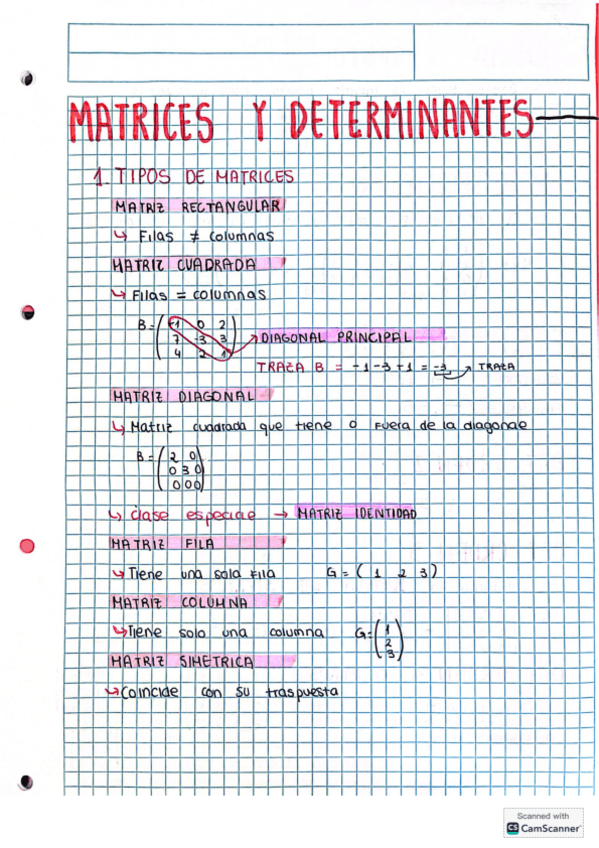 MATRICES Y DETERMINANTES
1. TIPOS DE MATRICES
MATRIZ RECTANGULAR
↳ Filas ≠ columnas
MATRIZ CUADRADA
↳ Filas = columnas
B = ( -1 0 2
7 -3 3
4 2 1 )
DIAGONAL PRINCIPAL
TRAZA B = -1-3+1 = -3 → TRAZA
MATRIZ DIAGONAL
↳ Matriz cuadrada que tiene 0 fuera de la diagonal
B = ( 2 0
0 3 0
0 0 0 )
↳ clase especial → MATRIZ IDENTIDAD
MATRIZ FILA
↳ Tiene una sola fila G = ( 1 2 3 )
MATRIZ COLUMNA
↳ Tiene solo una columna G = ( 1
2
3 )
MATRIZ SIMETRICA
↳ Coincide con su traspuesta
Scanned with
CS CamScanner